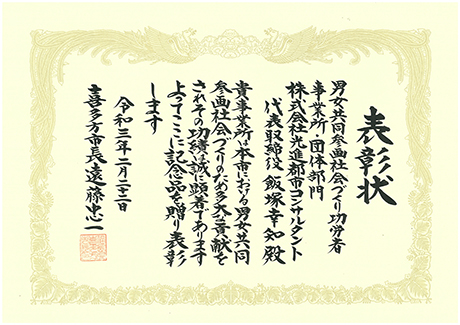 表彰状
男女共同参画社会づくり功労者
事業所・団体部門
株式会社光進都市コンサルタント
代表取締役 飯塚幸知殿
貴事業所は本市における男女共同
参画社会づくりのため多大な貢献を
されその功績は誠に顕著であります
よってここに記念品を贈り表彰
します
令和三年二月二十二日
喜多方市長 遠藤忠一